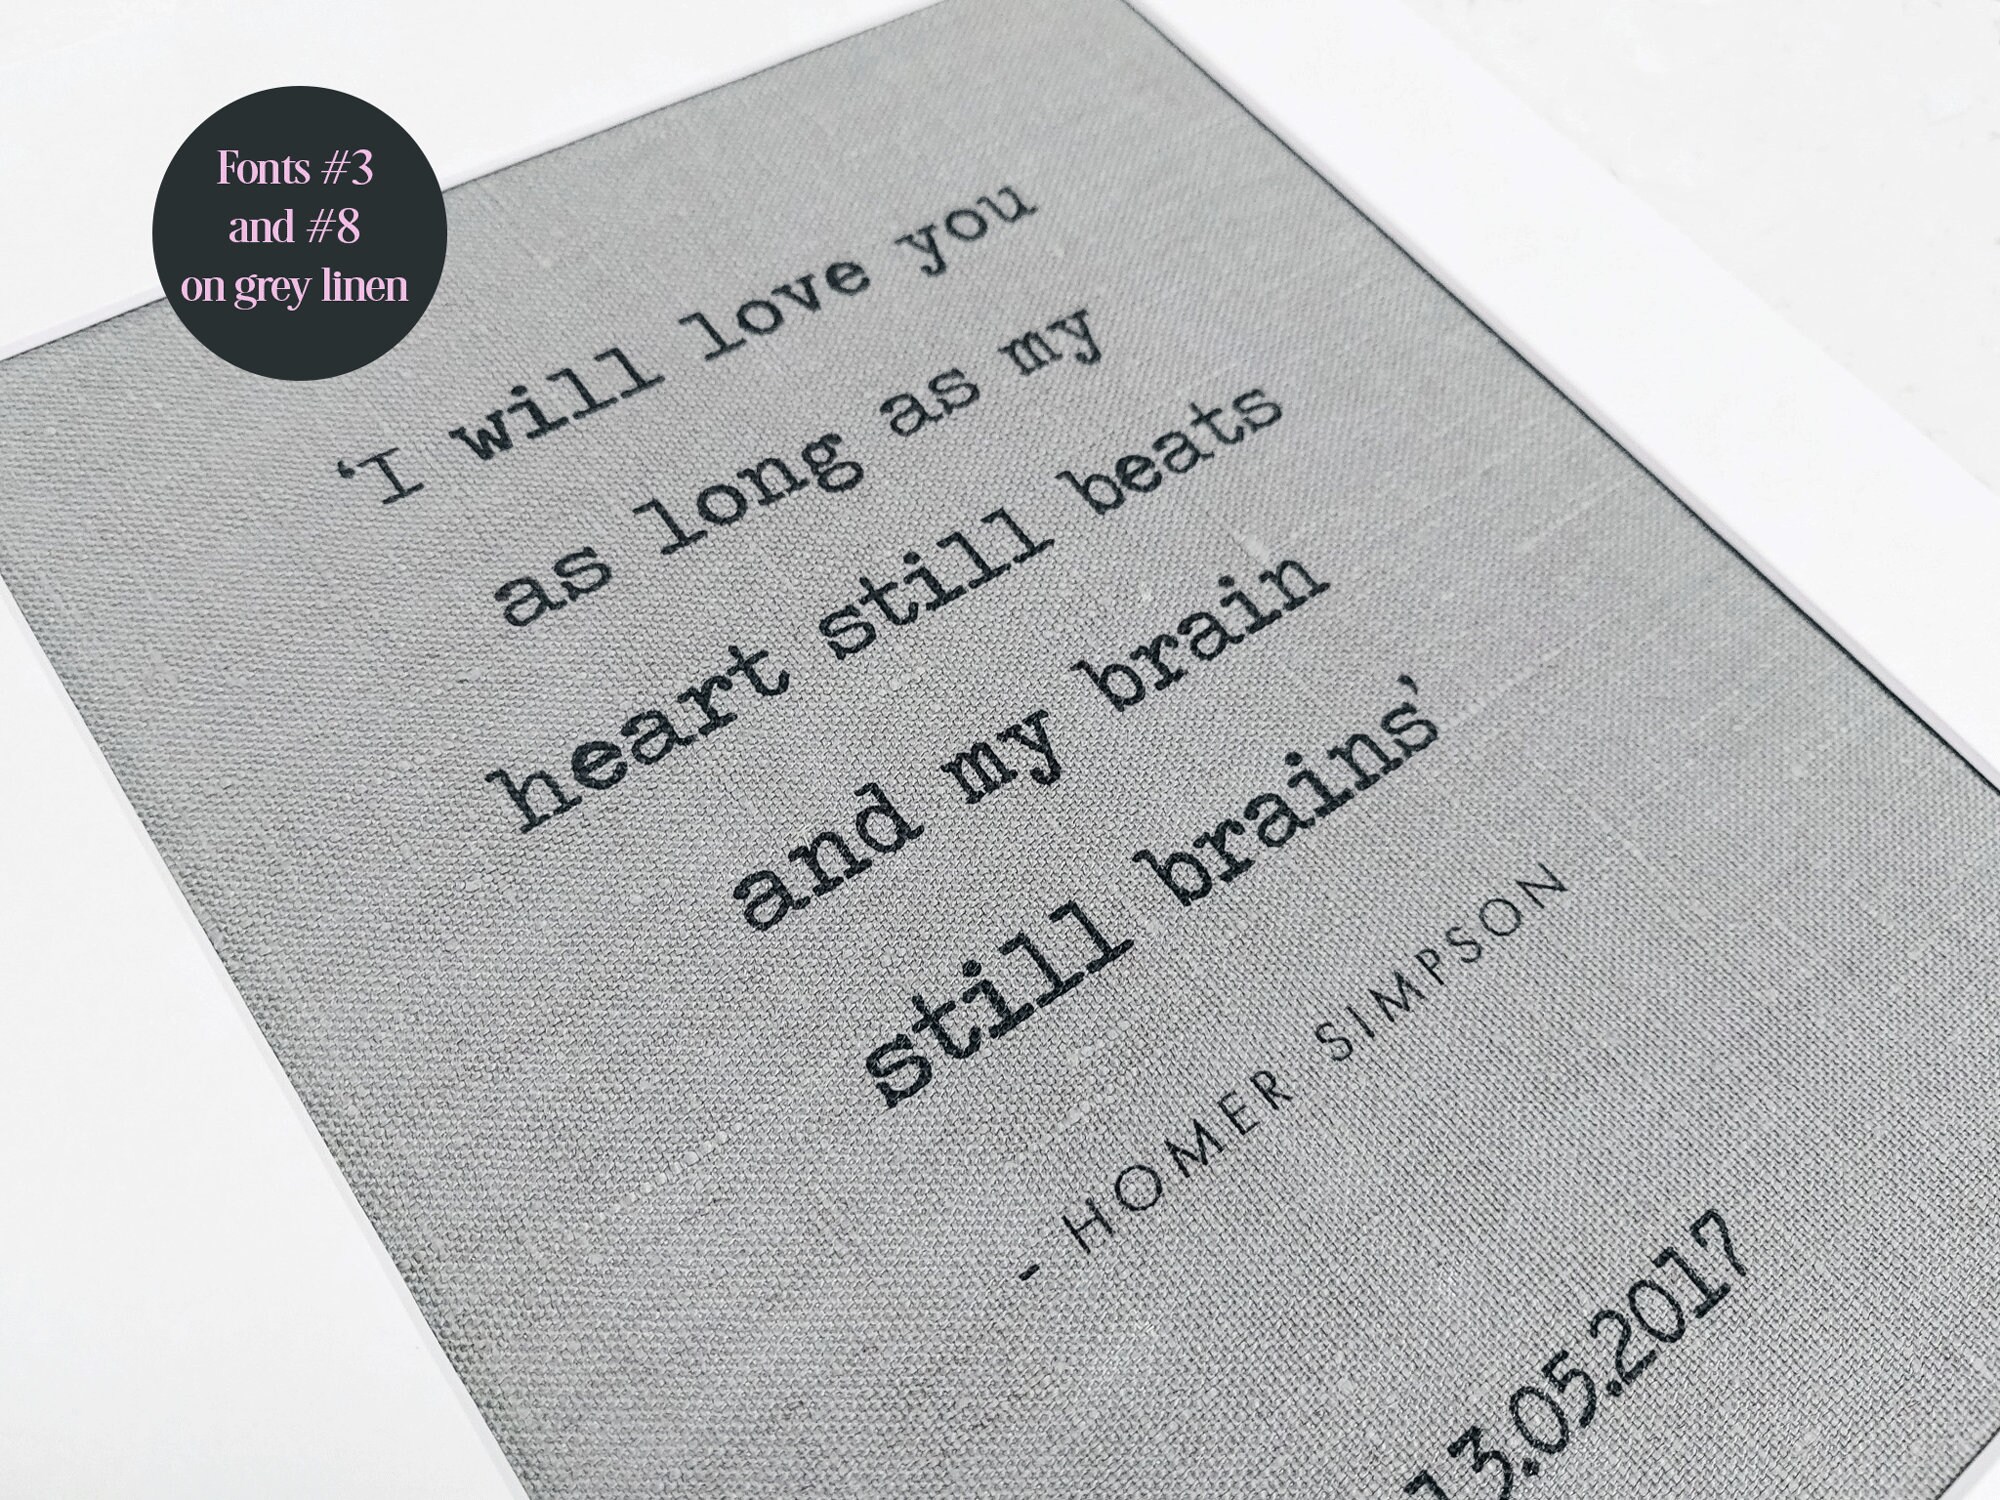 Fonts #3
and #8
on grey linen
‘I will love you
as long as my
heart still beats
and my brain
still brains’
- HOMER SIMPSON
13.05.2017